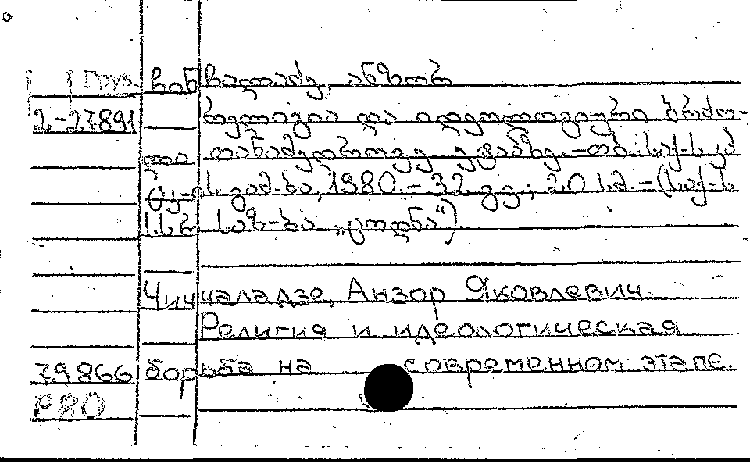 Груз. ჩინჩალაძე, ანზორ
2-27891 რელიგია და იდეოლოგიური ბრძო-
ლა თანამედროვე ეტაპზე. -თბ.: საქ. სს კპ
ც კ-ის გამ-ბა, 1980. - 32 გვ.; 20 სმ. - (საქ. სს
საზ-ბა „ცოდნა“)
Чинчаладзе, Анзор Яковлевич.
Религия и идеологическая
79866 борьба на современном этапе.
80